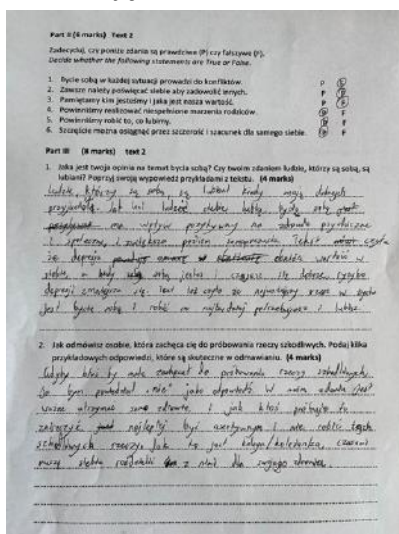 Part II (6 marks) Text 2
Zadecyduj, czy poniże zdania są prawdziwe (P) czy fałszywe (F).
Decide whether the following statements are True or False.
1. Bycie sobą w każdej sytuacji prowadzi do konfliktów. P F
2. Zawsze należy poświęcać siebie aby zadowolić innych. P F
3. Pamiętamy kim jesteśmy i jaka jest nasza wartość. P F
4. Powinniśmy realizować niespełnione marzenia rodziców. P F
5. Powinniśmy robić to, co lubimy. P F
6. Szczęście można osiągnąć przez szczerość i szacunek dla samego siebie. P F
Part III (8 marks) text 2
1. Jaka jest twoja opinia na temat bycia sobą? Czy twoim zdaniem ludzie, którzy są sobą, są
lubiani? Poprzyj swoją wypowiedź przykładami z tekstu. (4 marks)
Ludzie, którzy są sobą, są lubiani kiedy mają dobrych
przyjaciół. Jak ludzie będą sobą
ma wpływ pozytywny na zdrowie psychiczne
i społeczne, i zwiększa poziom Tekst
że depresja wartość w
siebie, a kiedy sobą jesteś i czujesz się dobrze, ryzyko
depresji zmniejsza się. że najważniejszy w życiu
jest bycie sobą i robić co najbardziej i lubisz.
2. Jak odmówisz osobie, która zachęca cię do próbowania rzeczy szkodliwych. Podaj kilka
przykładowych odpowiedzi, które są skuteczne w odmawianiu. (4 marks)
Gdyby ktoś by mnie do próbowania rzeczy szkodliwych
to bym powiedział "nie" jako odpowiedź. W moim zdaniu jest
ważne utrzymać zdrowie i jak ktoś próbuje to
najlepiej być asertywnym i nie robić tych
szkodliwych rzeczy. Jak to jest kolega/koleżanka, czasami
muszę siebie z nimi dla swojego zdrowia.